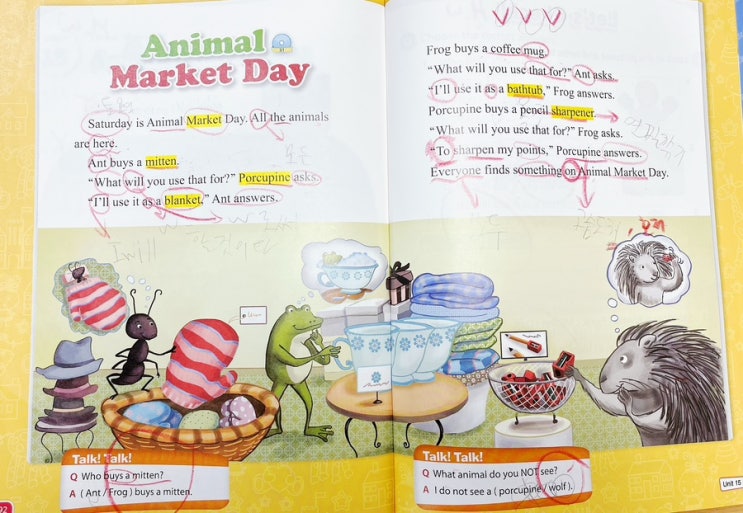 Animal
Market Day
Saturday is Animal Market Day. All the animals
are here.
Ant buys a mitten.
"What will you use that for?" Porcupine asks.
"I'll use it as a blanket," Ant answers.
I will
Talk! Talk!
Q Who buys a mitten?
A ( Ant / Frog ) buys a mitten.
Frog buys a coffee mug.
"What will you use that for?" Ant asks.
"I'll use it as a bathtub," Frog answers.
Porcupine buys a pencil sharpener.
"What will you use that for?" Frog asks.
"To sharpen my points," Porcupine answers.
Everyone finds something on Animal Market Day.
Talk! Talk!
Q What animal do you NOT see?
A I do not see a ( porcupine / wolf ).
Unit 18